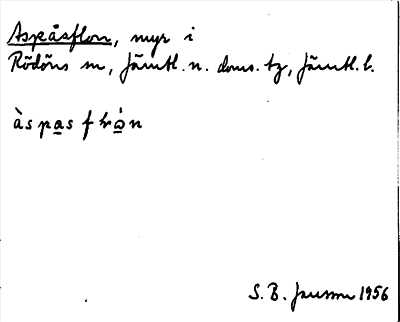 Aspåsflon, myr i
Rödöns sn, Jämtl. n. doms. tg, Jämtl. l.
àspas flrȯn
S. B. Jansson 1956